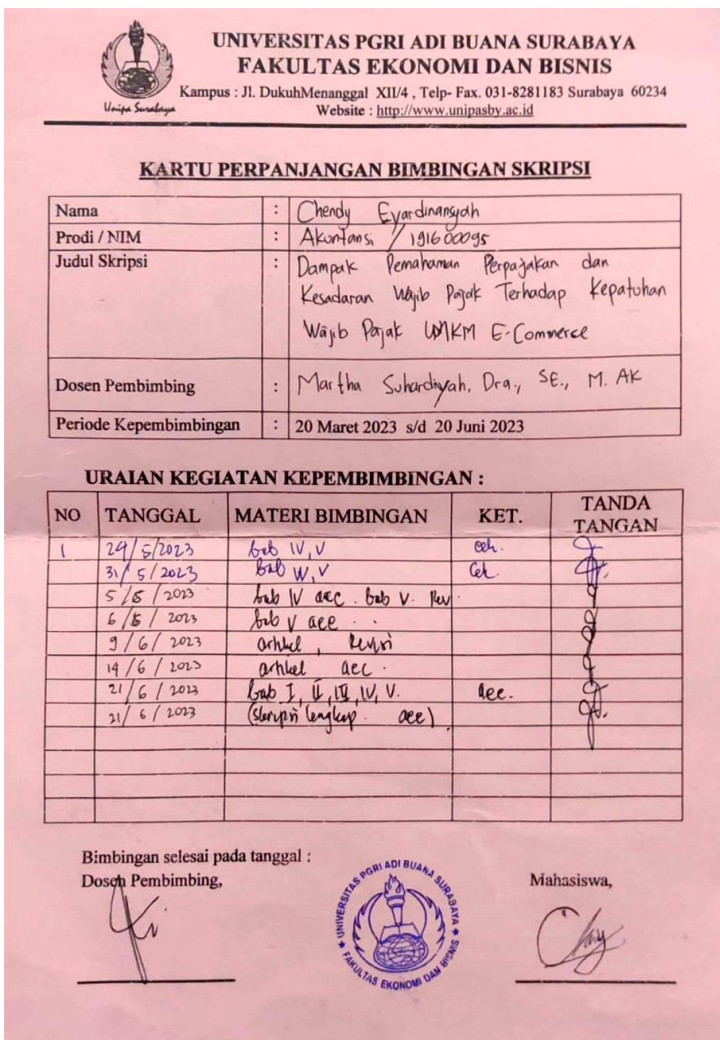 UNIVERSITAS PGRI ADI BUANA SURABAYA
FAKULTAS EKONOMI DAN BISNIS
Kampus : Jl. DukuhMenanggal XII/4 , Telp- Fax. 031-8281183 Surabaya 60234
Website : http://www.unipasby.ac.id
Unipa Surabaya
KARTU PERPANJANGAN BIMBINGAN SKRIPSI
Nama : Chendy Eyardinansyah
Prodi / NIM : Akuntansi / 191600095
Judul Skripsi : Dampak Pemahaman Perpajakan dan
Kesadaran Wajib Pajak Terhadap Kepatuhan
Wajib Pajak UMKM E-Commerce
Dosen Pembimbing : Martha Suhardiyah, Dra., SE., M. AK
Periode Kepembimbingan : 20 Maret 2023 s/d 20 Juni 2023
URAIAN KEGIATAN KEPEMBIMBINGAN :
NO TANGGAL MATERI BIMBINGAN KET. TANDA TANGAN
1 29/5/2023 bab IV, V
31/5/2023 bab IV, V
5/6/2023 bab IV acc. bab V. Rev
6/6/2023 bab V acc
9/6/2023 artikel, Revisi
14/6/2023 artikel acc.
21/6/2023 bab I, II, III, IV, V. acc.
21/6/2023 (skripsi lengkap acc)
Bimbingan selesai pada tanggal :
Dosen Pembimbing, Mahasiswa,
UNIVERSITAS PGRI ADI BUANA SURABAYA
FAKULTAS EKONOMI DAN BISNIS